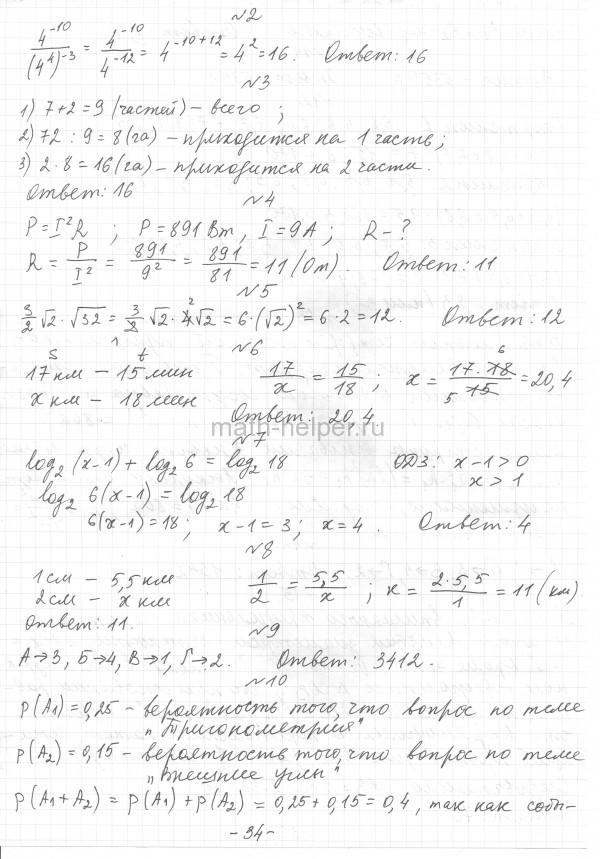 №2
4^-10/(4^4)^-3 = 4^-10/4^-12 = 4^-10+12 = 4^2 = 16. Ответ: 16
№3
1) 7+2=9 (частей) – всего ;
2) 72 : 9 = 8 (га) – приходится на 1 часть;
3) 2·8 = 16 (га) – приходится на 2 части.
Ответ: 16
№4
P = I²R ; P = 891 Вт, I = 9A ; R – ?
R = P/I² = 891/9² = 891/81 = 11 (Ом). Ответ: 11
№5
3/2 √2 · √32 = 3/2 √2 · 4√2 = 6·(√2)² = 6·2 = 12. Ответ: 12
№6
S t
17 км – 15 мин 17/x = 15/18 ; x = 17·18/15 = 20,4
x км – 18 мин
Ответ: 20,4
math-helper.ru
№7
log₂(x-1) + log₂6 = log₂18 ОДЗ: x-1>0
log₂6(x-1) = log₂18 x>1
6(x-1) = 18; x-1=3; x=4. Ответ: 4
№8
1см – 5,5 км 1/2 = 5,5/x ; x = 2·5,5/1 = 11 (км)
2см – x км
Ответ: 11.
№9
А→3, Б→4, В→1, Г→2. Ответ: 3412.
№10
p(A₁) = 0,25 – вероятность того, что вопрос по теме
„Тригонометрия"
p(A₂) = 0,15 – вероятность того, что вопрос по теме
„Внешние углы"
p(A₁+A₂) = p(A₁)+p(A₂) = 0,25+0,15 = 0,4, так как собы-
- 34 -